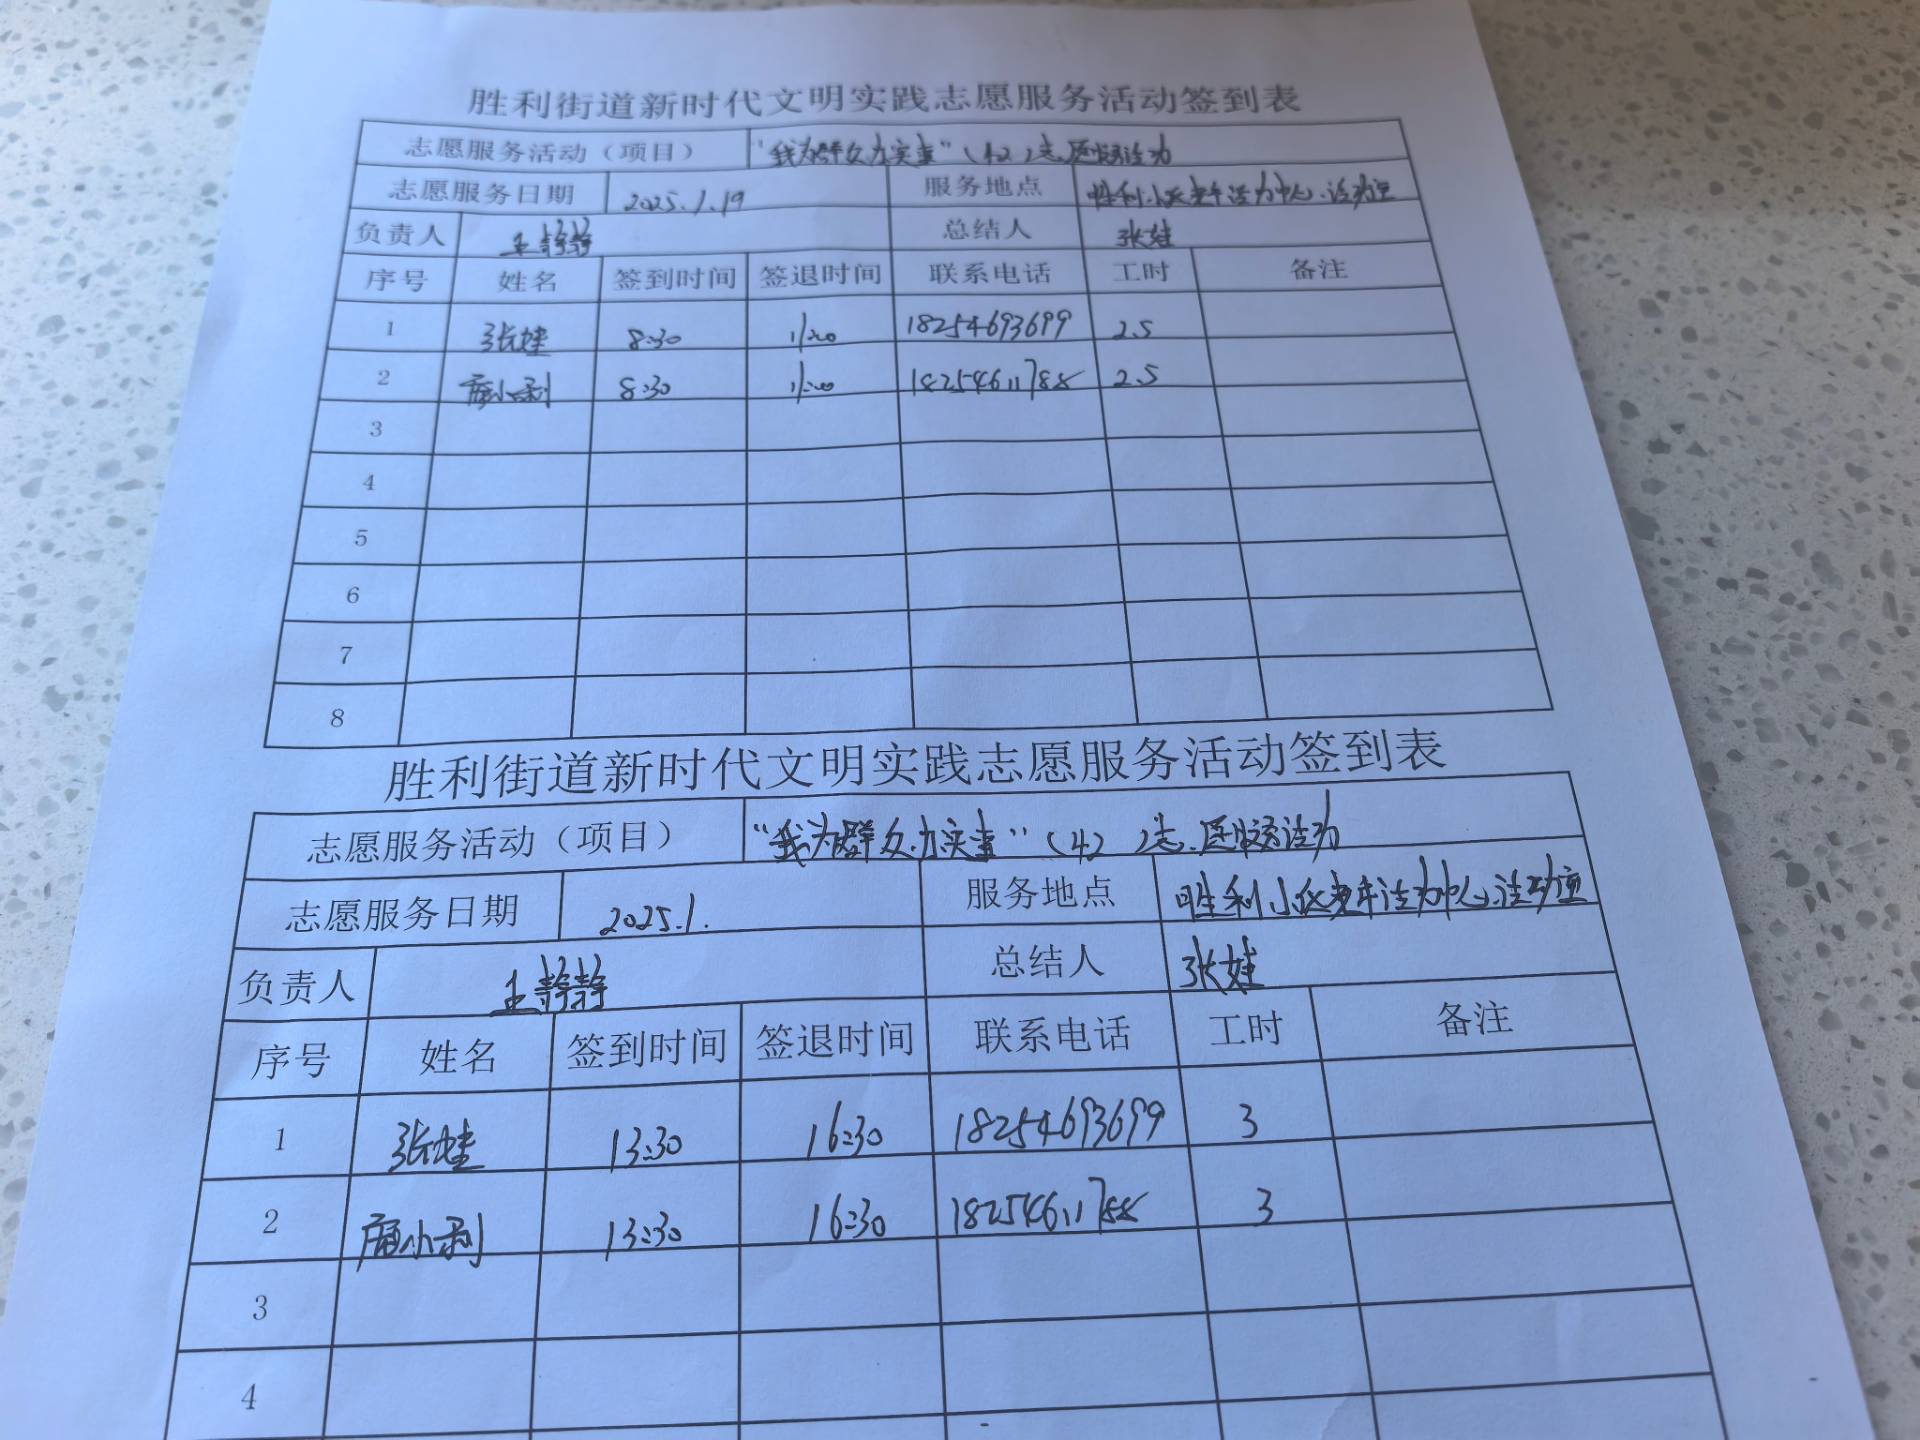 胜利街道新时代文明实践志愿服务活动签到表
志愿服务活动（项目） "我为群众办实事"（42）志愿服务活动
志愿服务日期 2025.1.19 服务地点 胜利小区老年活动中心、活动室
负责人 王静静 总结人 张娃
序号 姓名 签到时间 签退时间 联系电话 工时 备注
1 张娃 8:30 11:00 18254693699 2.5
2 小利 8:30 11:00 18254611788 2.5
3
4
5
6
7
8
胜利街道新时代文明实践志愿服务活动签到表
志愿服务活动（项目） "我为群众办实事"（42）志愿服务活动
志愿服务日期 2025.1. 服务地点 胜利小区老年活动中心、活动室
负责人 王静静 总结人 张娃
序号 姓名 签到时间 签退时间 联系电话 工时 备注
1 张娃 13:30 16:30 18254693699 3
2 小利 13:30 16:30 18254611788 3
3
4